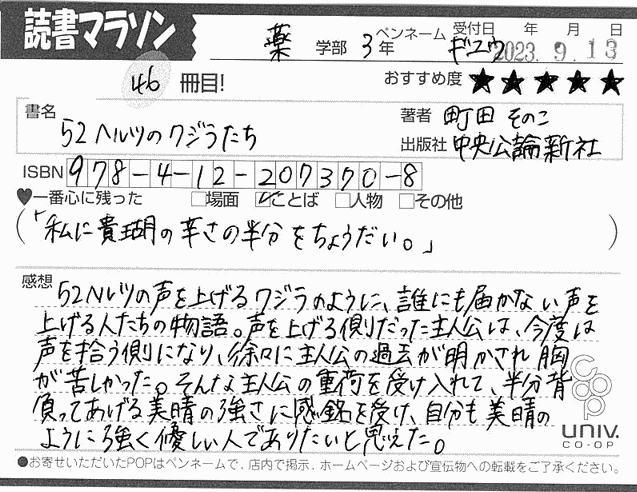 読書マラソン
薬 学部 3年 ペンネーム ギユウ 受付日 年 月 日
2023. 9. 13
46 冊目! おすすめ度 ★★★★★
書名 52ヘルツのクジラたち
著者 町田 そのこ
出版社 中央公論新社
ISBN 978-4-12-207370-8
♥一番心に残った □場面 ☑ことば □人物 □その他
(「私に貴瑚の辛さの半分をちょうだい。」)
感想 52Nルツの声を上げるクジラのように、誰にも届かない声を
上げる人たちの物語。声を上げる側だった主人公は、今度は
声を拾う側になり、徐々に主人公の過去が明かされ胸
が苦しかった。そんな主人公の重荷を受け入れて、半分背
負ってあげる美晴の強さに感銘を受け、自分も美晴の
ように強く優しい人でありたいと思えた。
coop
UNIV.
CO-OP
●お寄せいただいたPOPはペンネームで、店内で掲示、ホームページおよび宣伝物への転載をご了承ください。